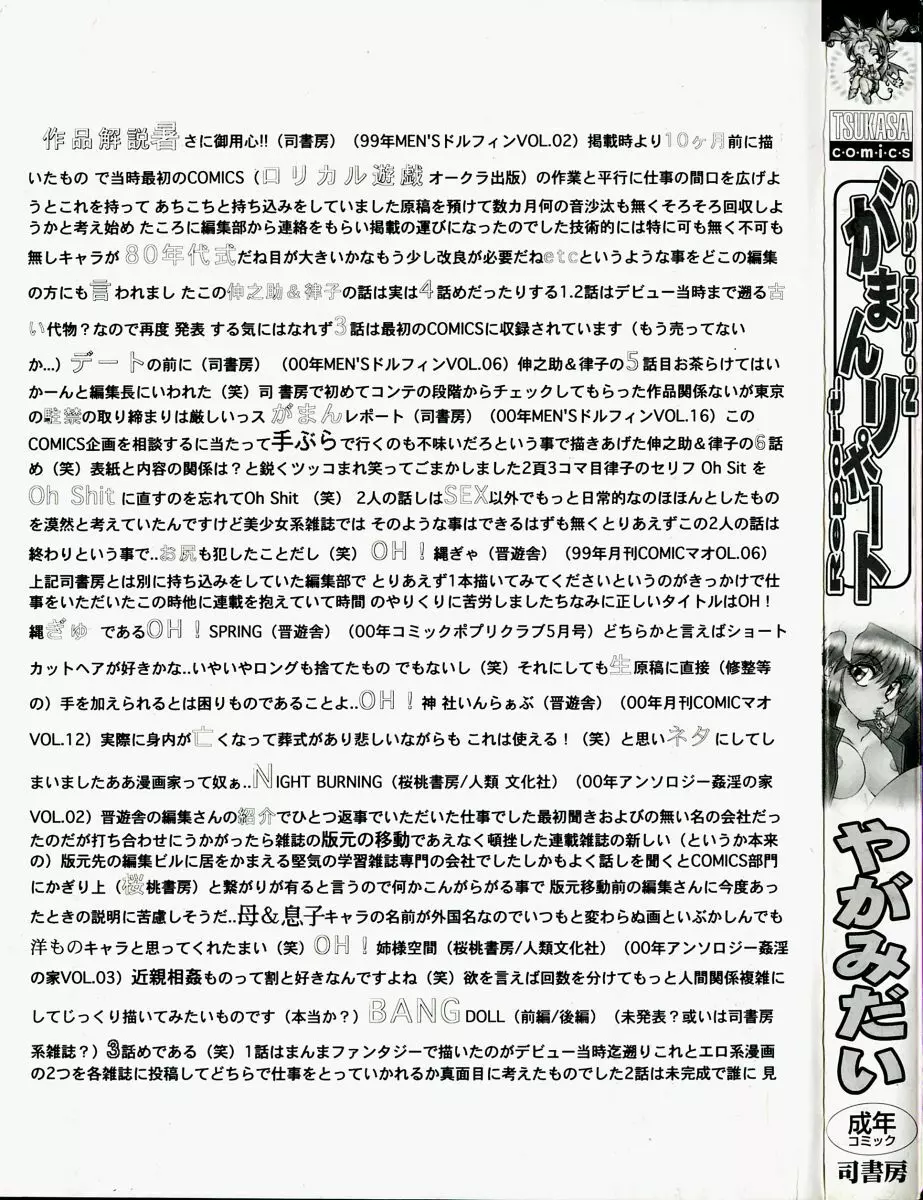 作品解説暑さに御用心!!（司書房）（99年MEN'SドルフィンVOL.02）掲載時より10ヶ月前に描
いたもの で当時最初のCOMICS（ロリカル遊戯オークラ出版）の作業と平行に仕事の間口を広げよ
うとこれを持って あちこちと持ち込みをしていました原稿を預けて数カ月何の音沙汰も無くそろそろ回収しよ
うかと考え始め たころに編集部から連絡をもらい掲載の運びになったのでした技術的には特に可も無く不可も
無しキャラが80年代式だね目が大きいかなもう少し改良が必要だねetcというような事をどこの編集
の方にも言われまし たこの伸之助&律子の話は実は4話めだったりする1.2話はデビュー当時まで遡る古
い代物？なので再度 発表 する気にはなれず3話は最初のCOMICSに収録されています（もう売ってない
か...）デートの前に（司書房）（00年MEN'SドルフィンVOL.06）伸之助&律子の5話目お茶らけてはい
かーんと編集長にいわれた（笑）司 書房で初めてコンテの段階からチェックしてもらった作品関係ないが東京
の駐禁の取り締まりは厳しいっス がまんレポート（司書房）（00年MEN'SドルフィンVOL.16）この
COMICS企画を相談するに当たって手ぶらで行くのも不味いだろという事で描きあげた伸之助&律子の6話
め（笑）表紙と内容の関係は？と鋭くツッコまれ笑ってごまかしました2頁3コマ目律子のセリフ Oh Sit を
Oh Shit に直すのを忘れてOh Shit （笑） 2人の話しはSEX以外でもっと日常的なのほほんとしたもの
を漠然と考えていたんですけど美少女系雑誌では そのような事はできるはずも無くとりあえずこの2人の話は
終わりという事で..お尻も犯したことだし（笑） OH！縄ぎゃ（晋遊舎）（99年月刊COMICマオOL.06）
上記司書房とは別に持ち込みをしていた編集部で とりあえず1本描いてみてくださいというのがきっかけで仕
事をいただいたこの時他に連載を抱えていて時間 のやりくりに苦労しましたちなみに正しいタイトルはOH！
縄ぎゅ であるOH！SPRING（晋遊舎）（00年コミックポプリクラブ5月号）どちらかと言えばショート
カットヘアが好きかな..いやいやロングも捨てたもの でもないし（笑）それにしても生原稿に直接（修整等
の）手を加えられるとは困りものであることよ..OH！神 社いんらぁぶ（晋遊舎）（00年月刊COMICマオ
VOL.12）実際に身内が亡くなって葬式があり悲しいながらも これは使える！（笑）と思いネタにしてし
まいましたああ漫画家って奴ぁ..NIGHT BURNING（桜桃書房/人類 文化社）（00年アンソロジー姦淫の家
VOL.02）晋遊舎の編集さんの紹介でひとつ返事でいただいた仕事でした最初聞きおよびの無い名の会社だっ
たのだが打ち合わせにうかがったら雑誌の版元の移動であえなく頓挫した連載雑誌の新しい（というか本来
の）版元先の編集ビルに居をかまえる堅気の学習雑誌専門の会社でしたしかもよく話しを聞くとCOMICS部門
にかぎり上（桜桃書房）と繋がりが有ると言うので何かこんがらがる事で 版元移動前の編集さんに今度あっ
たときの説明に苦慮しそうだ..母&息子キャラの名前が外国名なのでいつもと変わらぬ画といぶかしんでも
洋ものキャラと思ってくれたまい（笑）OH！姉様空間（桜桃書房/人類文化社）（00年アンソロジー姦淫
の家VOL.03）近親相姦ものって割と好きなんですよね（笑）欲を言えば回数を分けてもっと人間関係複雑に
してじっくり描いてみたいものです（本当か？）BANG DOLL（前編/後編）（未発表？或いは司書房
系雑誌？）3話めである（笑）1話はまんまファンタジーで描いたのがデビュー当時迄遡りこれとエロ系漫画
の2つを各雑誌に投稿してどちらで仕事をとっていかれるか真面目に考えたものでした2話は未完成で誰に 見
TSUKASA
c・o・m・i・c・s
がまんリポート
Report
やがみだい
成年
コミック
司書房